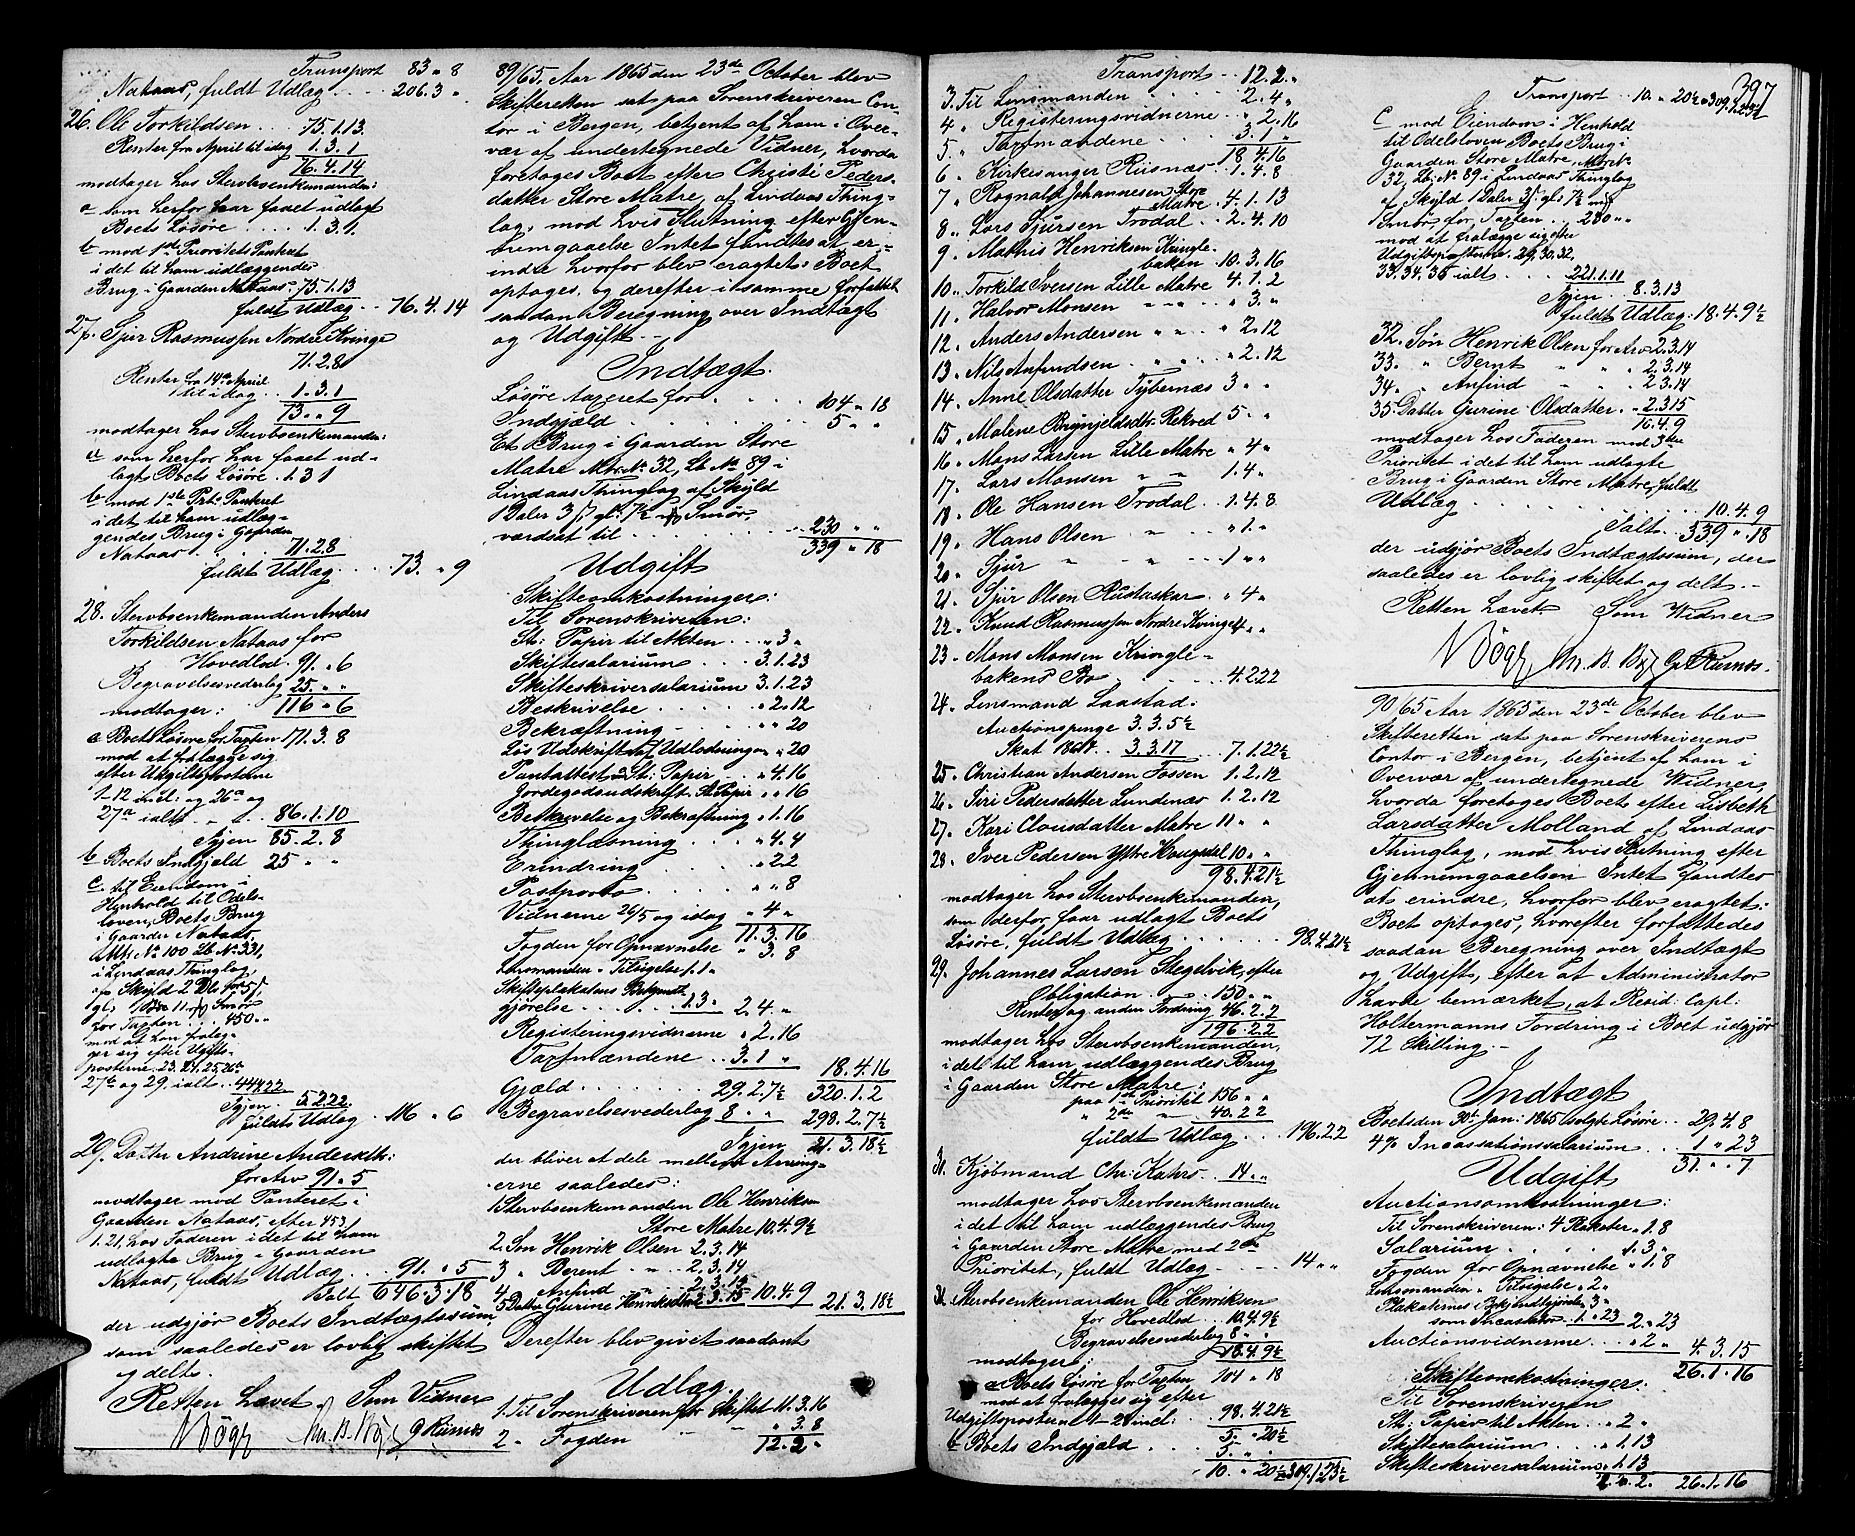 Transport 83 " 8
Nataas, fuldt Udlæg .... 206.3 "
26. Ole Torkildsen ... 75.1.13.
Renter fra April til idag 1.3.1
76.4.14
modtager hos Stervboenkemanden:
a som herfor faar faaet udlagt
Boets Løsøre .... 1.3.1.
b mod 1ste Prioritets Panteret
i det til ham udlæggendes
Brug i Gaarden Nataas, 75.1.13
fuldt Udlæg .. 76.4.14
27. Sjur Rasmussen Nordre Kvinge
71.2.8
Renter fra 14de April
til idag .. 1.3.1
73. " 9
modtager hos Stervboenkemanden:
a som herfor har faaet ud-
lagt Boets Løsøre . 1.3.1
b mod 1ste Prts Panteret
i det til ham udlæg-
gendes Brug i Gaarden
Nataas .... 71.2.8
fuldt Udlæg .... 73. " 9
28. Stervboenkemanden Anders
Torkildsen Nataas for
Hovedlod . 91. " 6
Begravelsesvederlag 25. " "
modtager: 116 " 6
a Boets Løsøre for Taxten 171.3.8
mod at fralægge sig
efter Udgiftsposterne
1-12 incl: og 26a og
27a ialt .. 86.1.10
Igjen 85.2.8
b Boets Indgjæld 25 " "
c til Eiendom i
Henhold til Odels-
loven, Boets Brug
i Gaarden Nataas,
Mtr. No 100 Lb No 331,
i Lindaas Thinglag,
af Skyld 2 Dl. for 5 /
gl; 11. Smør
for Taxten ... 450 " "
mod at han fralæg-
ger sig efter Udgifts-
posterne 23, 24, 25, 26b
27b og 29. ialt .. 444.2.2
Igjen. 5.2.22.
fuldt Udlæg . 116 " 6
29. Datter Andrine Andersdtr:
for Arv 91 " 5
modtager mod Panteret i
Gaarden Nataas, efter 453
1.21, hos Faderen i det til ham
udlagte Brug i Gaarden
Nataas, fuldt Udlæg .. 91. " 5
Ialt 646.3.18
der udgjør Boets Indtægtssum
som saaledes er lovlig skiftet
og delt.
Retten hævet. Som Vidner
89/65. Aar 1865 den 23de October blev
Skifteretten sat paa Sorenskriveren Con-
tor i Bergen, betjent af ham i Over-
vær af undertegnede Vidner, hvorda
foretoges Boet efter Christi Peders-
datter Store Matre, af Lindaas Thing-
lag, mod hvis Slutning efter Gjen-
nemgaaelse Intet fandtes at er-
indre hvorfor blev eragtet: Boet
optages, og derefter ihsamme forfattet
saadan Beregning over Indtægt
og Udgift. —
Indtægt.
Løsøre taxeret for .... 104 " 18
Indgjæld .... 5 " "
Et Brug i Gaarden Store
Matre Mtr. No 32, Lb No 89 i
Lindaas Thinglag af Skyld
1 Daler 3 / gl. 7½ Smør,
værdiet til .... 230 " "
339 " 18
Udgift
Skifteomkostninger:
Til Sorenskriveren:
St: Papir til Akten ... " 3 "
Skiftesalarium ... 3.1.23
Skifteskriversalarium 3.1.23
Beskrivelse .... " 2.12
Bekræftning .... " " 20
Løs Udskrift af Udlodningen " " 20
Pantattest og St: Papir ... " 4.16
Jordegodsudskrift St. Papir . " " 16
Beskrivelse og Bekræftning " 1.16
Thinglæsning .... " 4.4
Erindring .... " 2 2
Postporto .... " " 8
Vidnerne 26/5 og idag " 4 "
11.3.16
Fogden for Opnævnelse " 3.8
Lensmanden " Tilsigelse 1.1 "
Skifteplakatens Bekjendt-
gjørelse ..... 1.3 " 2.4. "
Registreringsvidnerne " 2.16
Taxtmændene .. 3.1 " 18.4.16
Gjæld .... 29.2.7½ 320.1.2
Begravelsesvederlag 8 " " 298.2.7½
Igjen 21.3.18½
der bliver at dele mellem Arving-
erne saaledes:
1 Stervboenkemanden Ole Henriksen
Store Matre 10.4.9½
2. Søn Henrik Olsen 2.3.14
3 " Berent " " 2.3.14
4 Anfind " 2.3.14
5 Datter Gjurine Henriksdtr 2.3.15 10.4.9 21.3.18½
Derefter blev givet saadant
Udlæg.
1. Til Sorenskriveren for Skiftet 11.3.16
2 " Fogden " " " 3.8
12.2 "
Transport .. 12.2 "
3. Til Lensmanden .... 2.4 "
4 " Registeringsvidnerne .. " 2.16
5. " Taxtmændene .... 3.1 "
18.4.16
6 " Kirkesanger Riisnæs .. 1.4.8
7 " Rognald Johannesen Store
Matre . 4.1.13
8 " Lars Sjursen Trodal .. 2.4.10
9 " Mathis Henriksen Kringle-
bakken .. 10.3.16
10 " Torkild Iversen Lille Matre 4.1.2
11. " Halvor Monsen " " .. " 3. "
12 " Anders Andersen " " . " 2.12
13 " Nils Anfindsen ... " " " 2.12
14 " Anne Olsdatter Tybernæs 3 " "
15 " Malene Brynjelsdtr Rekved 5 " "
16 " Mons Larsen Lille Matre " 4 "
17. " Lars Monsen " " 1.4 "
18 " Ole Hansen Trodal .. 1.4.8
19 " Hans Olsen " .. " 1 "
20 " Sjur " " .. " 1 "
21. " Sjur Olsen Rustaskar .. " 4 "
22 " Knud Rasmussen Nordre Kvinge 4 " "
23 " Mons Monsen Kringle-
bakens Bo .... 4.2.22
24. " Lensmand Laastad.
Auctionspenge 3.3.5½
Skat 1864 .. 3.3.17 . 7.1.22½
25. " Christian Andersen Fossen 1.2.12
26 " Siri Pedersdatter Lundnæs 1.2.12
27. " Kari Clausdatter Matre 11 " "
28. " Iver Pedersen Ystre Haugsdal 10 " "
98.4.21½
modtager hos Stervboenkemanden,
som derfor faar udlagt Boets
Løsøre, fuldt Udlæg .... 98.4.21½
29. Johannes Larsen Stegelvik, efter
Obligation .... 150 " "
Renter og anden Fordring 46.2.2
196.2.2
modtager hos Stervboenkemanden,
i det til ham udlæggendes Brug
i Gaarden Store Matre:
paa 1ste Prioritet 156 " "
" 2den — " — 40.2.2
fuldt Udlæg .. 196.2.2
30. Kjøbmand Chr: Kahrs . 14 " "
modtager hos Stervboenkemanden
i det til ham udlæggendes Brug
i Gaarden Store Matre med 2den
Prioritet, fuldt Udlæg .... 14 " "
31. Stervboenkemanden Ole Henriksen
for Hovedlod .. 10.4.9½
Begravelsesvederlag 8 " "
modtager: 18.4.9½
a Boets Løsøre for Taxten 104 " 18
mod at fralægge sig efter
Udgiftsposterne 1-28 incl. 98.4.21½
5. " 20½
b Boets Indgjæld .... 5. " "
10. " 20½ 309.1.23½
397
Transport .. 10. " 20½ 309.1.23½
c mod Eiendom i Henhold
til Odelsloven Boets Brug i
Gaarden Store Matre, Matrk
32, Lb. No 89 i Lindaas Thinglag
af Skyld 1 Daler 3 / gl. 7½
Smør for Taxten .. 230 " "
mod at fralægge sig efter
Udgiftsposterne 29. 30. 32,
33. 34. 35 ialt ... 221.1.11
Igjen .. 8.3.13
fuldt Udlæg: 18.4.9½
32. Søn Henrik Olsen for Arv 2.3.14
33. " Bernt " " " 2.3.14
34 " Anfind " " " 2.3.14
35. Datter Gjurine Olsdatter " 2.3.15
10.4.9
modtager hos Faderen mod 3die
Prioritet i det til ham udlagte
Brug i Gaarden Store Matre, fuldt
Udlæg .... 10.4.9
Ialt .. 339 " 18
der udgjør Boets Indtægtssum, der
saaledes er lovlig skiftet og delt. —
Retten hævet. Som Widner
90/65 Aar 1865 den 23de October blev
Skifteretten sat paa Sorenskriverens
Contor i Bergen, betjent af ham i
Overvær af undertegnede Widner,
hvorda foretoges Boet efter Lisbeth
Larsdatter Molland af Lindaas
Thinglag, mod hvis Slutning efter
Gjennemgaaelsen Intet fandtes
at erindre, hvorfor blev eragtet:
Boet optoges, hvorefter forfattedes
saadan Beregning over Indtægt
og Udgift, efter at Administrator
havde bemærket, at Resid: Capl:
Holtermanns Fordring i Boet udgjør
72 Skilling. —
Indtægt
Boets den 30te Jan: 1865 solgte Løsøre .. 29.4.8
4% Incassationssalarium ... 1 " 23
31. " . 7
Udgift
Auctionsomkostninger:
Til Sorenskriveren: 4 Plakater " 1.8
Salarium .... 1.3. "
Fogden for Opnævnelse " 1.8
Lensmanden " Tilsigelse " 2 "
Plakaternes Bekjendtgjørelse " 3 "
som Incassator .. 1. " 23 2. " 23
Auctionsvidnerne ... " 2 " 4.3.15
26.1.16
Skifteomkostninger:
Til Sorenskriveren
St: Papir til Akten .. " 2 "
Skiftesalarium .... " 1.13
Skifteskriversalarium " 1.13
26.1.16